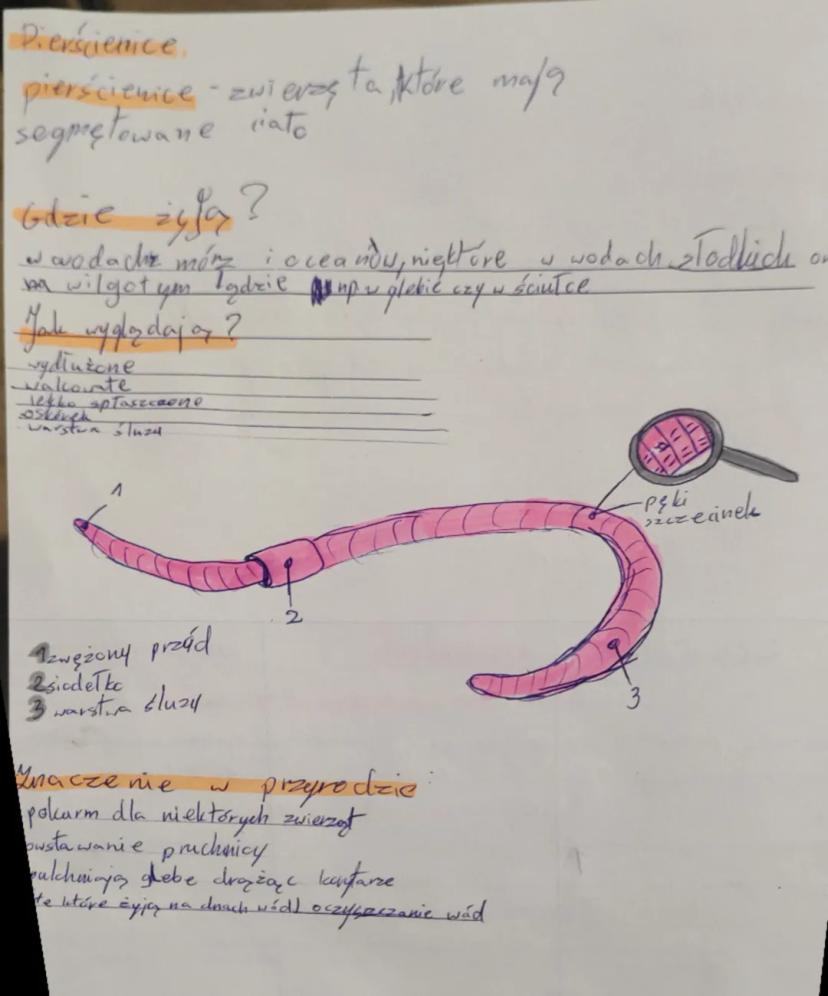 Pierścienice.
pierścienice - zwierzęta, które mają
segmętowane ciało
Gdzie żyją?
w wodach mórz i oceanów, niektóre w wodach złodkich or
na wilgotym lądzie np w glebie czy w ściułce
Jak wyglądają?
wydłużone
walcowate
lekko spłaszczone
oskórek
warstwa śluzu
1
pęki
szczecinek
2
3
1 zwężony przód
2 siodełko
3 warstwa śluzu
Znaczenie w przyrodzie
pokarm dla niektórych zwierząt
owstawanie pruchnicy
pulchniają glebe drążąc korytarze
te które żyją na dnach wód oczyszczanie wód